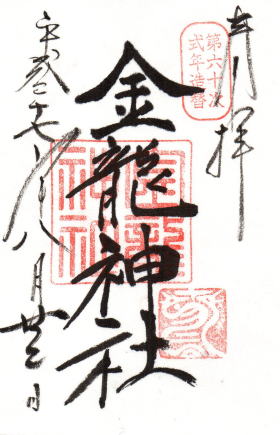 奉拝
第六十次
式年造替
金龍神社
金龍
神社
平成二十七年八月廿三日